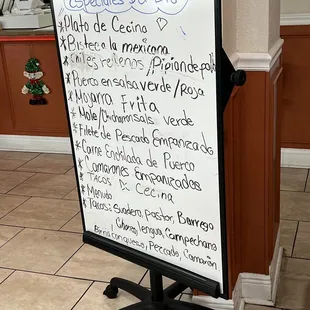 Especiales
* Plato de Cecina
* Bistec a la mexicana
* Chiles rellenos /Pipian de pollo
* Puerco en salsa verde/roja
* Mojarra Frita
* Mole /Chicharron salsa verde
* Filete de Pescado Empanizado
* Carne Enchilada de Puerco
* Camarones Empanizados
* Tacos D Cecina
* Menudo
* Tacos: Suadero, pastor, Borrego
Chorizo, lengua, Campechano
Carne con queso, Pescado, Camaron